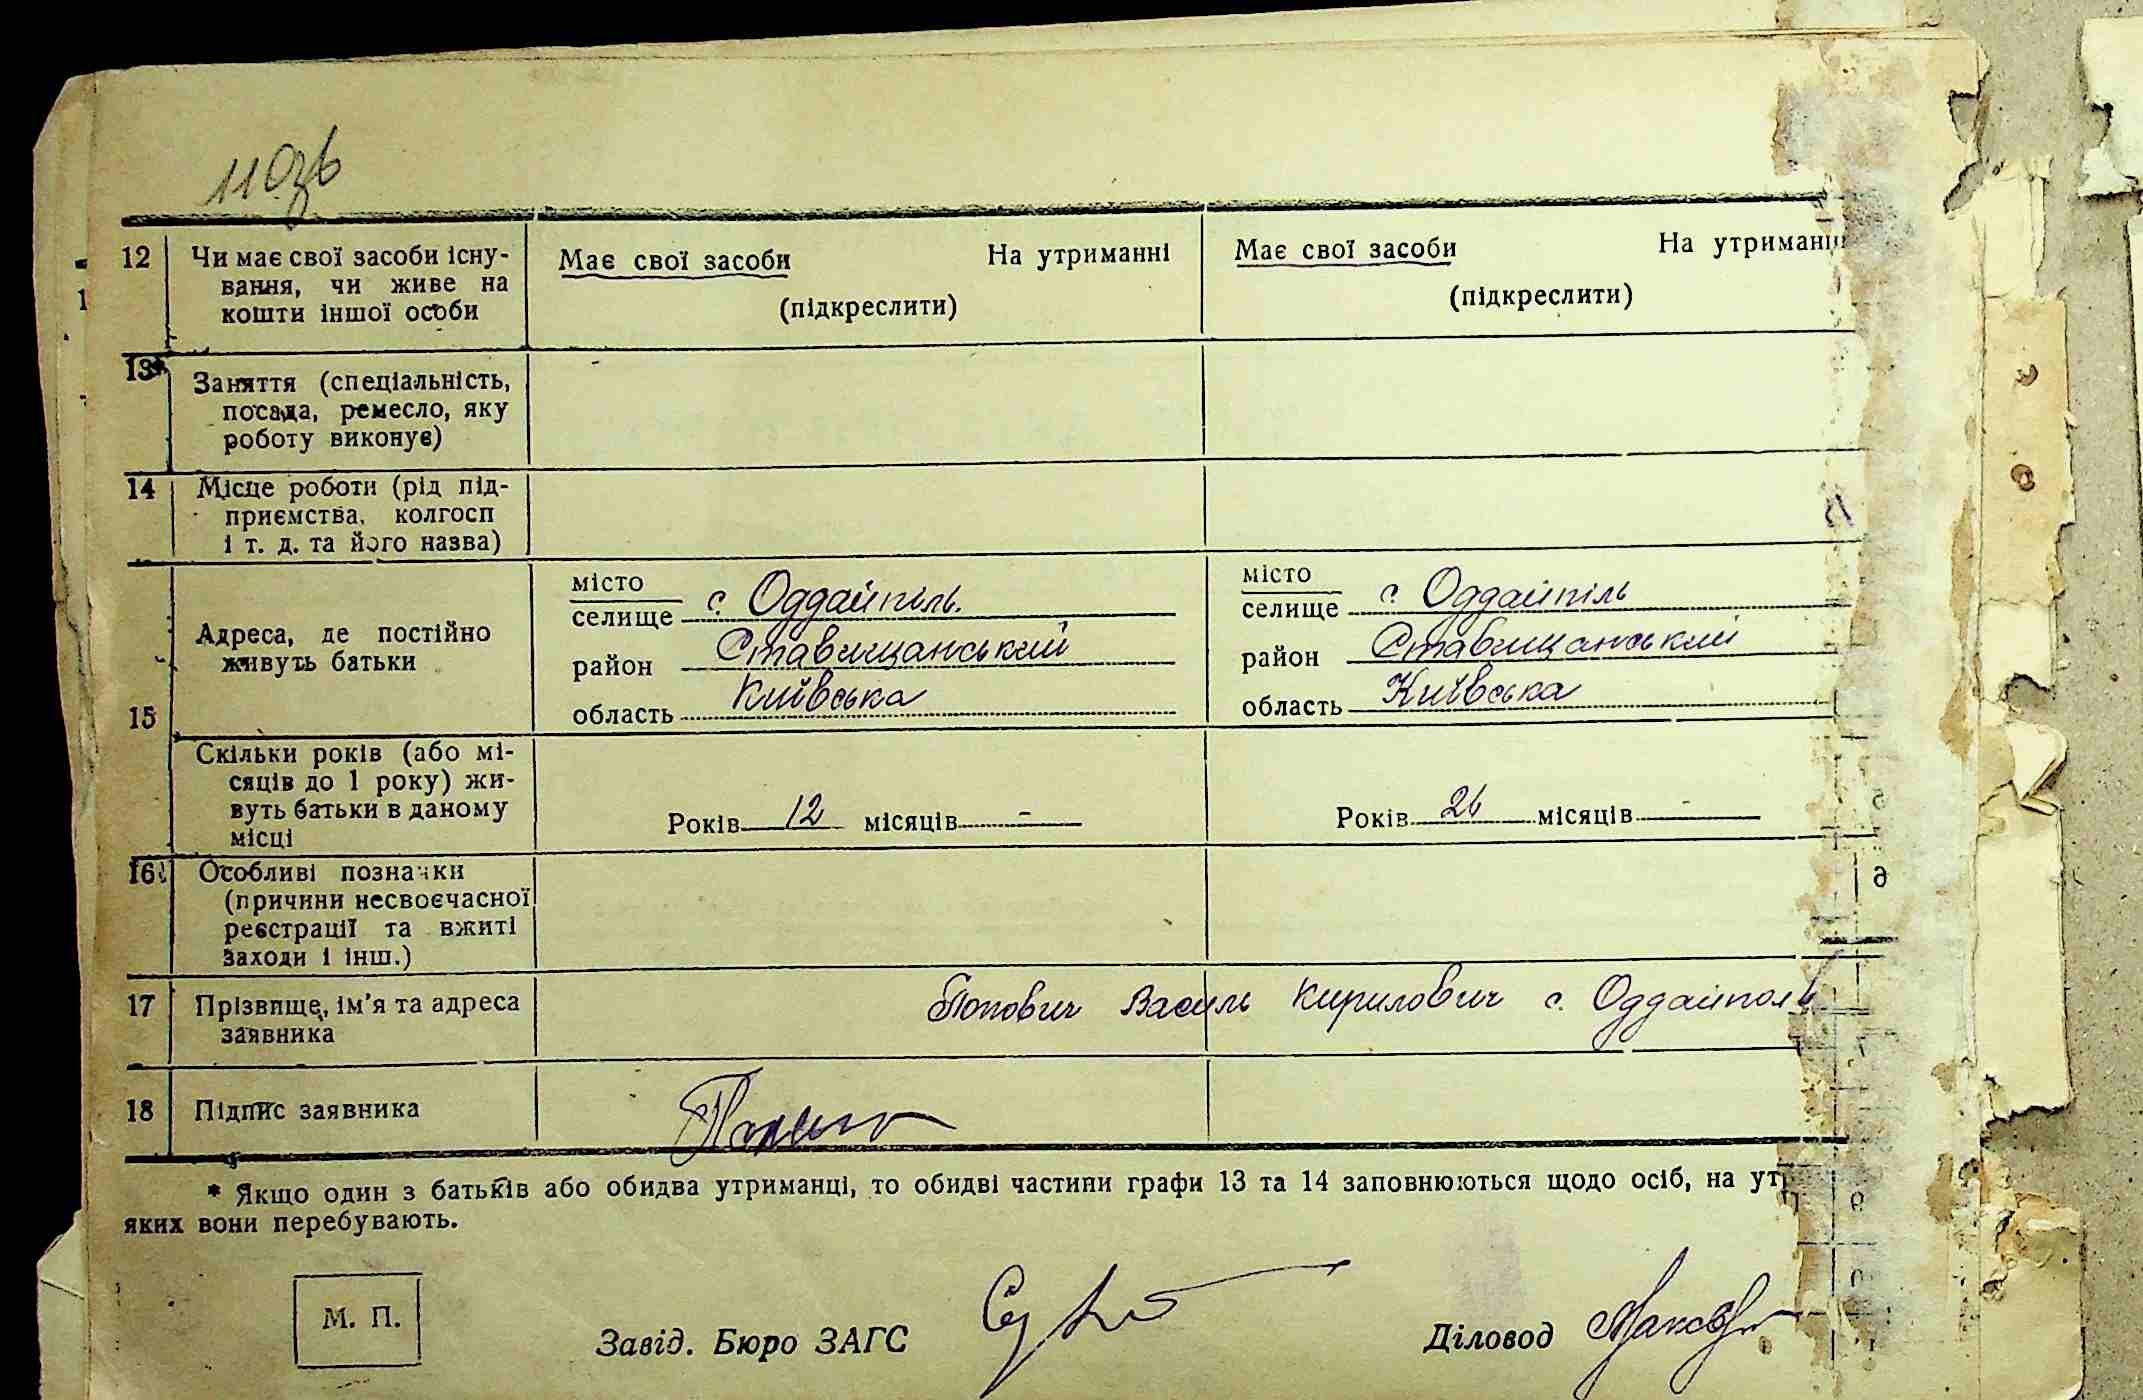 110зв
12 Чи має свої засоби існу- Має свої засоби На утриманні Має свої засоби На утриманн
вання, чи живе на (підкреслити) (підкреслити)
кошти іншої особи
13* Заняття (спеціальність,
посада, ремесло, яку
роботу виконує)
14 Місце роботи (рід під-
приємства, колгосп
і т. д. та його назва)
місто місто
селище с. Оддайпіль. селище с. Оддайпіль
Адреса, де постійно район Ставищанський район Ставищанський
живуть батьки
15 область Київська область Київська
Скільки років (або мі-
сяців до 1 року) жи-
вуть батьки в даному Років 12 місяців - Років 26 місяців -
місці
16 Особливі позначки
(причини несвоєчасної
реєстрації та вжиті
заходи і інш.)
17 Прізвище, ім'я та адреса Попович Василь Кирилович с. Оддайполь
заявника
18 Підпис заявника
* Якщо один з батьків або обидва утриманці, то обидві частини графи 13 та 14 заповнюються щодо осіб, на ут
яких вони перебувають.
М. П.
Завід. Бюро ЗАГС Діловод